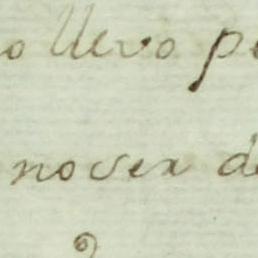 o llevo p
no ser d